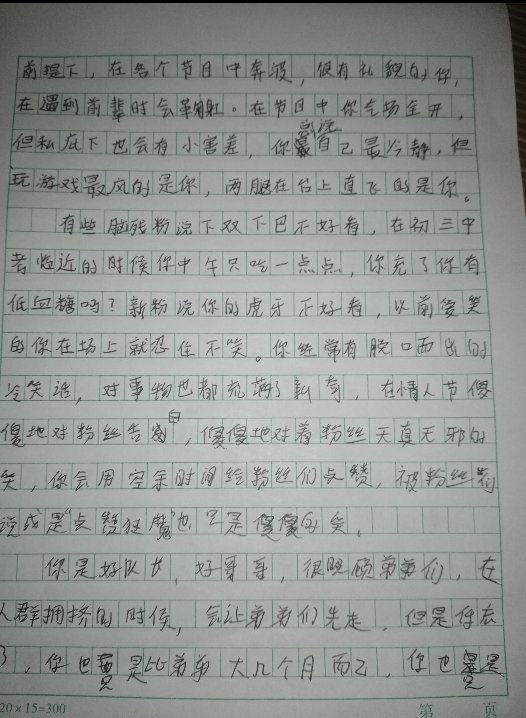 前提下，在各个节目中奔波，很有礼貌的你，
在遇到前辈时会鞠躬。在节目中你气场全开，
但私底下也会有小害羞，你总说自己最冷静，但
玩游戏最疯的是你，两腿在台上直飞的是你。
有些脑残粉说下双下巴不好看，在初三中
考临近的时候你中午只吃一点点，你忘了你有
低血糖吗？新粉说你的虎牙不好看，以前爱笑
的你在场上就忍住不笑。你经常有脱口而出的
冷笑话，对事物也都充满了新奇，在情人节傻
傻地对粉丝告白，傻傻地对着粉丝天真无邪的
笑，你会用空余时间给粉丝们点赞，被粉丝们
说成是"点赞狂魔"也只是傻傻的笑。
你是好队长，好哥哥，很照顾弟弟们，在
人群拥挤的时候，会让弟弟们先走，但是你忘
了，你也只是比弟弟大几个月而已，你也只是
20×15=300
第 页